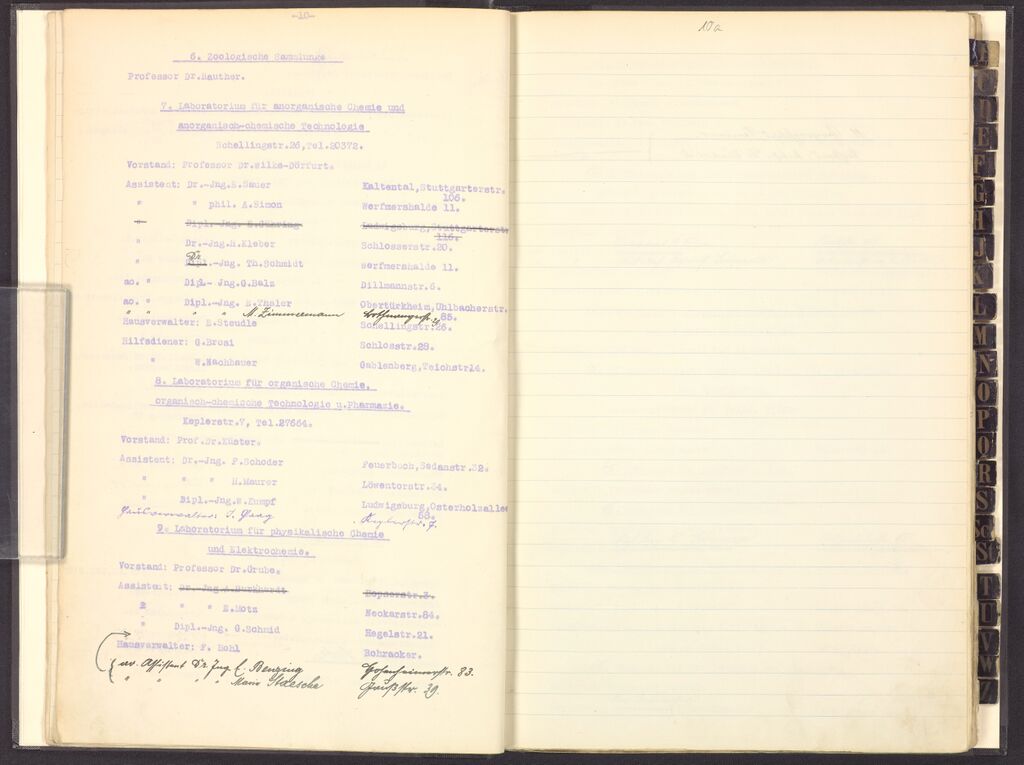 -10-
6. Zoologische Sammlungs
Professor Dr.Rauther.
7. Laboratorium für anorganische Chemie und
anorganisch-chemische Technologie
Schellingstr.26,Tel.20372.
Vorstand: Professor Dr.Wilke-Dörfurt.
Assistent: Dr.-Jng.E.Sauer Kaltental,Stuttgarterstr.
106.
" " phil. A.Simon Werfmershalde 11.
" Dipl.-Jng. E.Gühring Ludwigsburg,Stuttgarterstr
116.
" Dr.-Jng.H.Kleber Schlosserstr.20.
" Dr.-Jng. Th.Schmidt Werfmershalde 11.
ao. " Dipl.- Jng.G.Balz Dillmannstr.6.
ao. " Dipl.-Jng. E.Thaler Obertürkheim,Uhlbacherstr.
85.
" " " " M. Zimmermann
Hausverwalter: E.Steudle Schellingstr.26.
Hilfsdiener: G.Brosi Schlosstr.28.
" W.Nachbauer Gablenberg,Teichstr14.
8. Laboratorium für organische Chemie,
organisch-chemische Technologie u.Pharmazie.
Keplerstr.7, Tel.27664.
Vorstand: Prof.Dr.Küster.
Assistent: Dr.-Jng. F.Schoder Feuerbach,Sedanstr.32.
" " " H.Maurer Löwentorstr.34.
" Dipl.-Jng.W.Rumpf Ludwigsburg,Osterholzallee
53.
Hausverwalter: J. Haag Keplerstr. 7
9. Laboratorium für physikalische Chemie
und Elektrochemie.
Vorstand: Professor Dr.Grube.
Assistent: Dr.-Jng.A.Burkhardt Hopserstr.3.
" " " E.Motz Neckarstr.84.
" Dipl.-Jng. G.Schmid Hegelstr.21.
Hausverwalter: F. Bohl Rohracker.
av. Assistent Dr. Jng. E. Benzing Hohenheimerstr. 83.
" " " " Maria Staesche Gaußstr. 39.
10a
D
E
F
G
H
J
K
L
M
N
O
P
Q
R
S
Sch
St
T
U
V
W
Z